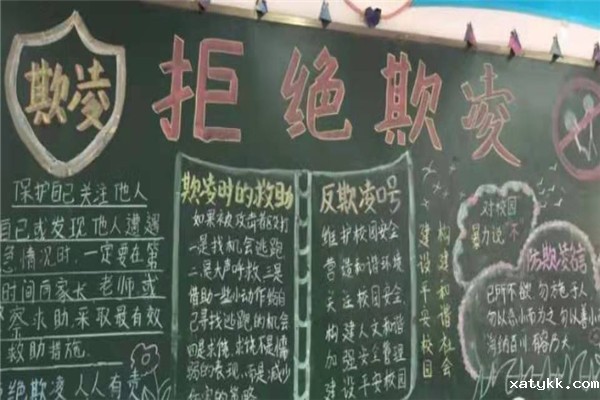 拒绝欺凌
欺凌
保护自己关注他人
自己或发现他人遭遇
急情况时,一定要在第
时间向家长、老师或
警察求助,采取最有效
救助措施.
绝欺凌人人有责
欺凌时的救助
如果被攻击者殴打
一是找机会逃跑
二是大声呼救三是
借助一些小动作给自
己寻找逃跑的机会
四是求饶,求饶不是懦
弱的表现,而是减少
伤害的策略
反欺凌口号
维护校园安全
营造和谐环境
关注校园安全
构建人文和谐
加强安全管理
建设平安校园
构建和谐社会
建设平安校园
对校园
暴力说"不"
防欺凌言
己所不欲勿施于人
勿以恶小而为之勿以善小
海纳百川有容乃大
www.xatykk.com